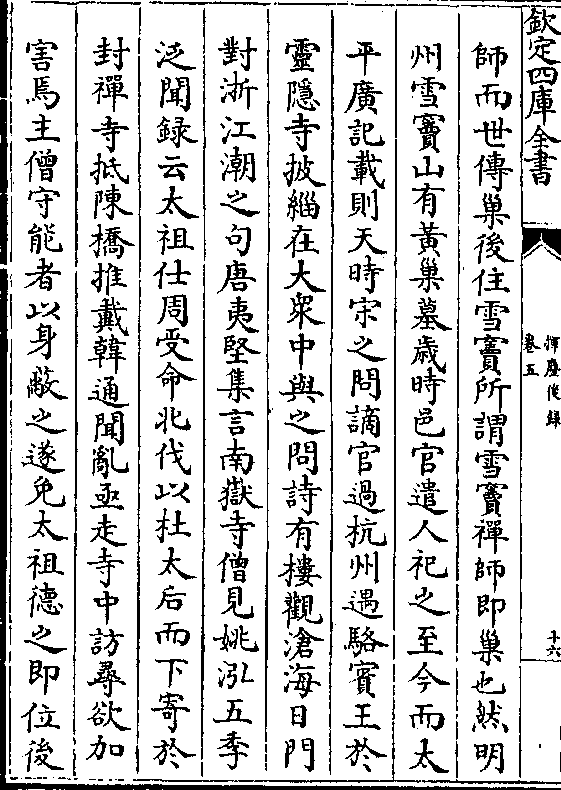 欽定四庫全書
揮麈後録
卷五
十六
師而世傳巢後住雪竇所謂雪竇禪師即巢也然明
州雪竇山有黃巢墓歲時邑官遣人祀之至今而太
平廣記載則天時宋之問謫官過杭州遇駱賓王於
靈隱寺披緇在大衆中與之問詩有樓觀滄海日門
對浙江潮之句唐夷堅集言南嶽寺僧見姚泓五季
泛聞録云太祖仕周受命北伐以杜太后而下寄於
封禪寺抵陳橋推戴韓通聞亂亟走寺中訪尋欲加
害焉主僧守能者以身蔽之遂免太祖德之即位後